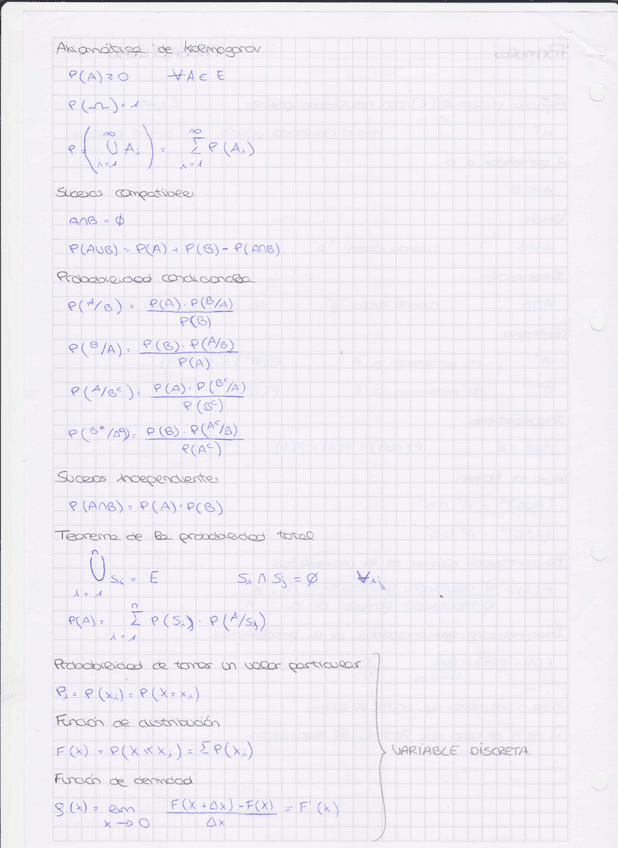 Axiomática de Kolmogorov
P(A) ≥ 0 ∀A ∈ E
P(Ω) = 1
P = (∞ ∪ i=1 Ai) = ∞ Σ i=1 P(Ai)
Sucesos compatibles
A∩B = Ø
P(A∪B) = P(A) + P(B) - P(A∩B)
Probabilidad condicionada
P(A/B) = P(A) · P(B/A) / P(B)
P(B/A) = P(B) · P(A/B) / P(A)
P(A/Bᶜ) = P(A) · P(Bᶜ/A) / P(Bᶜ)
P(Bᶜ/Aᶜ) = P(B) · P(Aᶜ/B) / P(Aᶜ)
Sucesos independiente
P(A∩B) = P(A) · P(B)
Teorema de la probabilidad total
n ∪ i=1 Si = E Si ∩ Sj = Ø ∀ij
P(A) = n Σ i=1 P(Si) · P(A/Sj)
Probabilidad de tomar un valor particular
Pi = P(xi) = P(X=xi)
Función de distribución
F(x) = P(X≤xi) = ΣP(xi)
VARIABLE DISCRETA
Función de densidad
f(x) = lim x→0 F(X+Δx) - F(x) / Δx = F'(x)